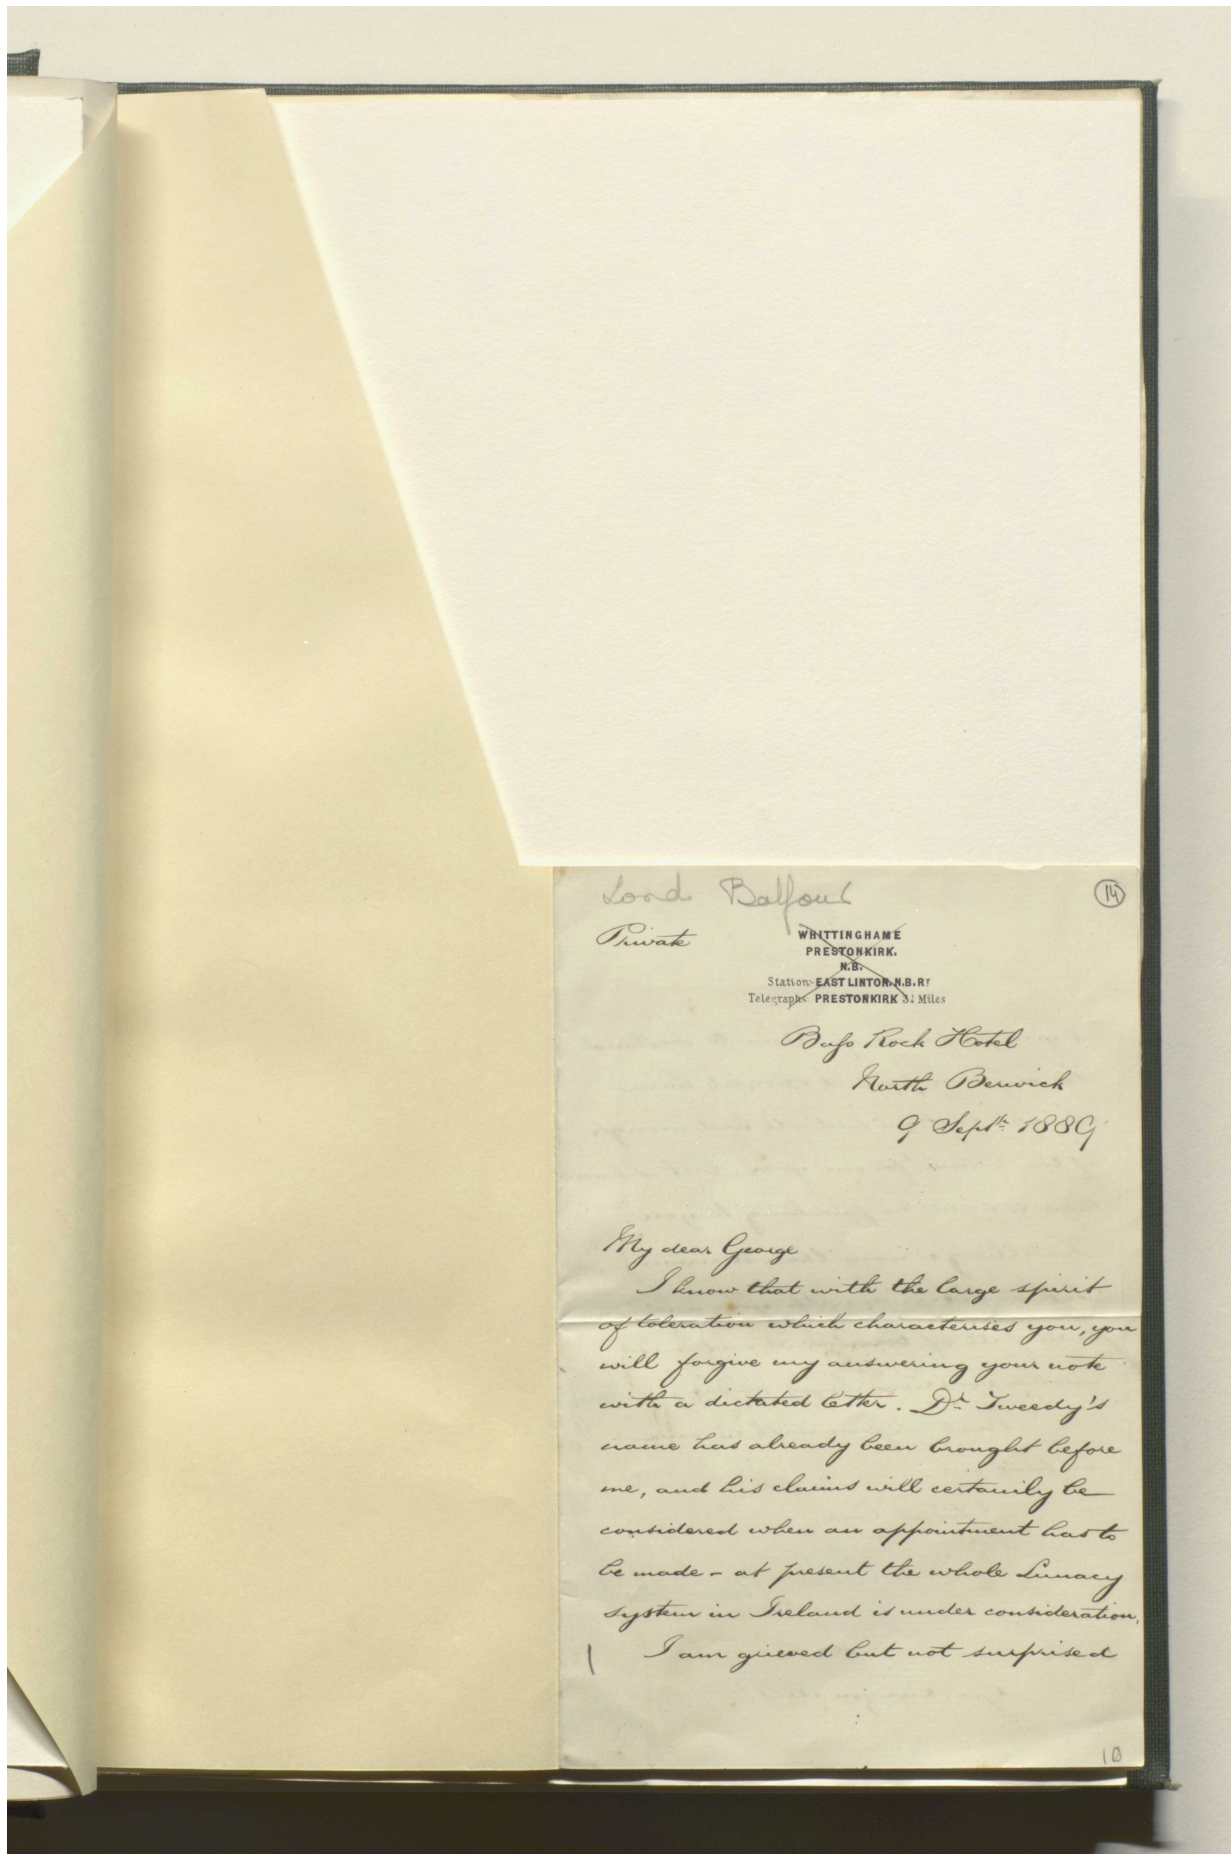 Lord Balfour
14
Private
WHITTINGHAME
PRESTONKIRK.
N.B.
Station:-EAST LINTON. N.B.Ry
Telegraphs: PRESTONKIRK 3¼ Miles
Bass Rock Hotel
North Berwick
9 Septr 1889
My dear George
I know that with the large spirit
of toleration which characterises you, you
will forgive my answering your note
with a dictated letter. Dr Tweedy's
name has already been brought before
me, and his claims will certainly be
considered when an appointment has to
be made - at present the whole Lunacy
system in Ireland is under consideration.
I am grieved but not surprised
10